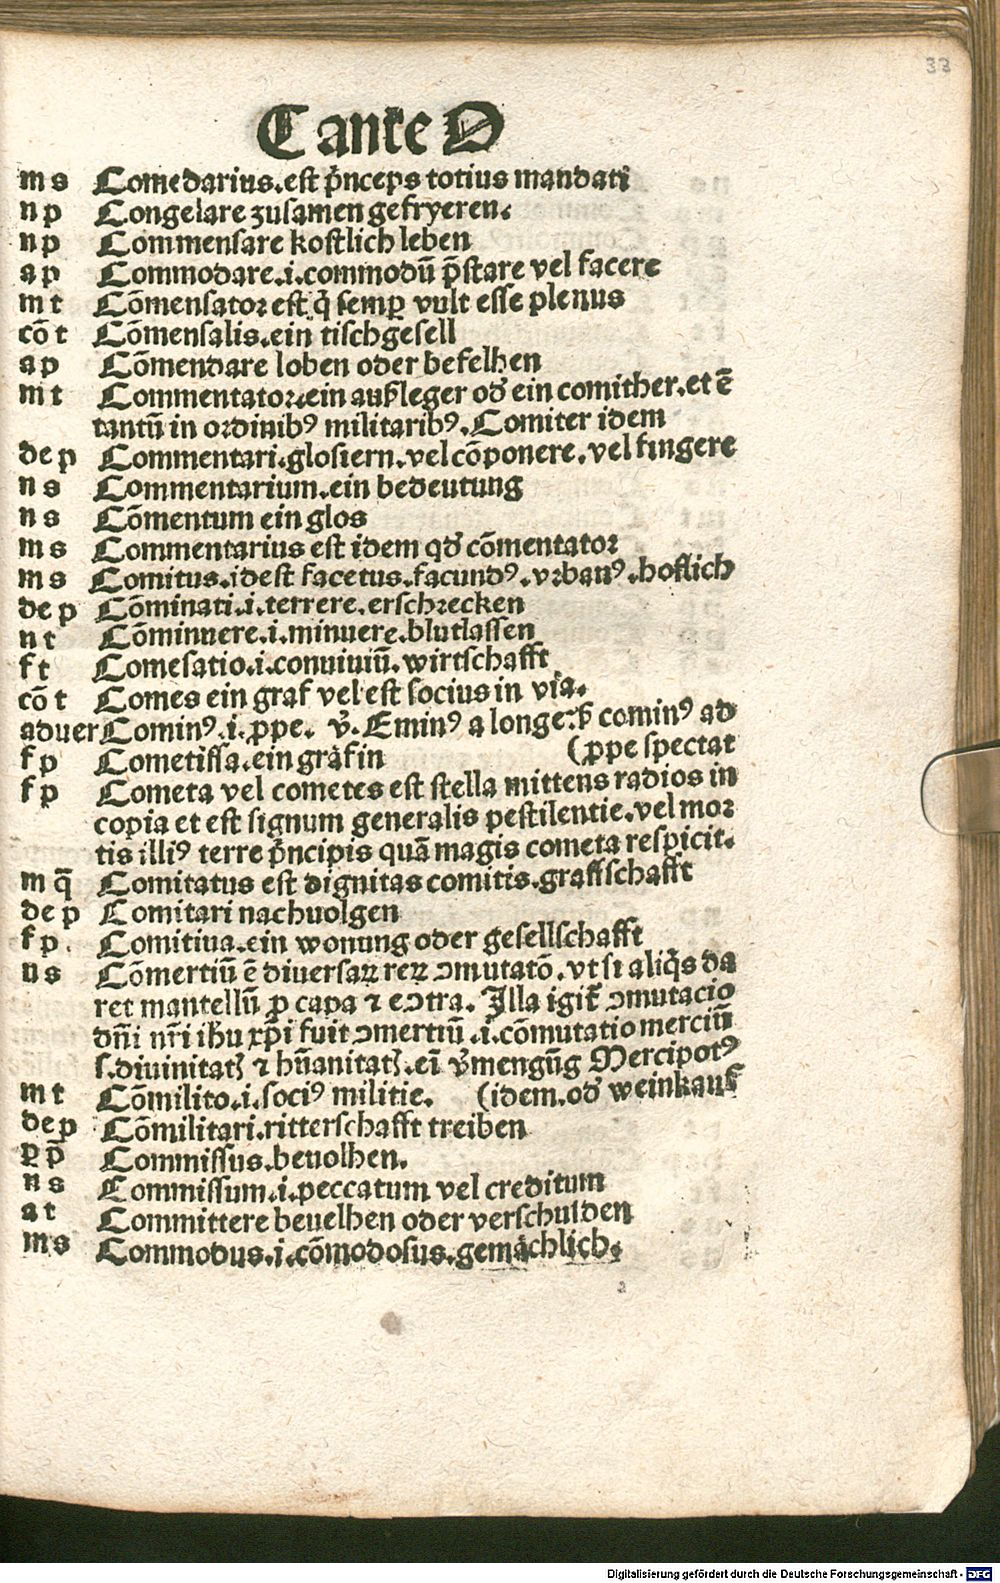 33
C ante O
m s Comedarius.est p̄nceps totius mandati
n p Congelare zusamen gefryeren.
n p Commensare kostlich leben
a p Commodare.i.commodū p̄stare vel facere
m t Cōmensator est q̄ semꝑ vult esse plenus
cō t Cōmensalis.ein tischgesell
a p Cōmendare loben oder befelhen
m t Commentator.ein außleger oď ein comither.et ē
tantū in ordinibꝰ militaribꝰ.Comiter idem
de p Commentari.glosiern.vel cōponere.vel fingere
n s Commentarium.ein bedeutung
n s Cōmentum ein glos
m s Commentarius est idem qď cōmentator
m s Comitus.idest facetus.facundꝰ.vrbanꝰ.hoflich
de p Cōminati.i.terrere.erschrecken
n t Cōminuere.i.minuere.blutlassen
f t Comesatio.i.conuiuiū.wirtschafft
cō t Comes ein graf vel est socius in via.
aduer Cominꝰ.i.ꝓpe. v̄. Eminꝰ a longe: ẜ cominꝰ ad
f p Cometissa.ein gräfin (ꝓpe spectat
f p Cometa vel cometes est stella mittens radios in
copia et est signum generalis pestilentie.vel mor
tis illiꝰ terre p̄ncipis quā magis cometa respicit.
m q̄ Comitatus est dignitas comitis.graffschafft
de p Comitari nachuolgen
f p. Comitiua.ein wonung oder gesellschafft
n s Cōmertiū ē diuersaꝝ reꝝ ꝯmutatō.vt si aliq̄s da
ret mantellū ꝓ capa ⁊ eꝯtra. Illa igit̄ ꝯmutacio
dn̄i nr̄i ihu xp̄i fuit ꝯmertiū.i.cōmutatio merciū
s.diuinitatꝭ ⁊ hūanitatꝭ.ei v̄mengūg Mercipotꝰ
m t Cōmilito.i.sociꝰ militie. (idem.oď weinkauf
de p Cōmilitari.ritterschafft treiben
p p̄ Commissus.beuolhen.
n s Commissum.i.peccatum vel creditum
a t Committere beuelhen oder verschulden
m s Commodus.i.cōmodosus.gemächlich.
Digitalisierung gefördert durch die Deutsche Forschungsgemeinschaft - DFG